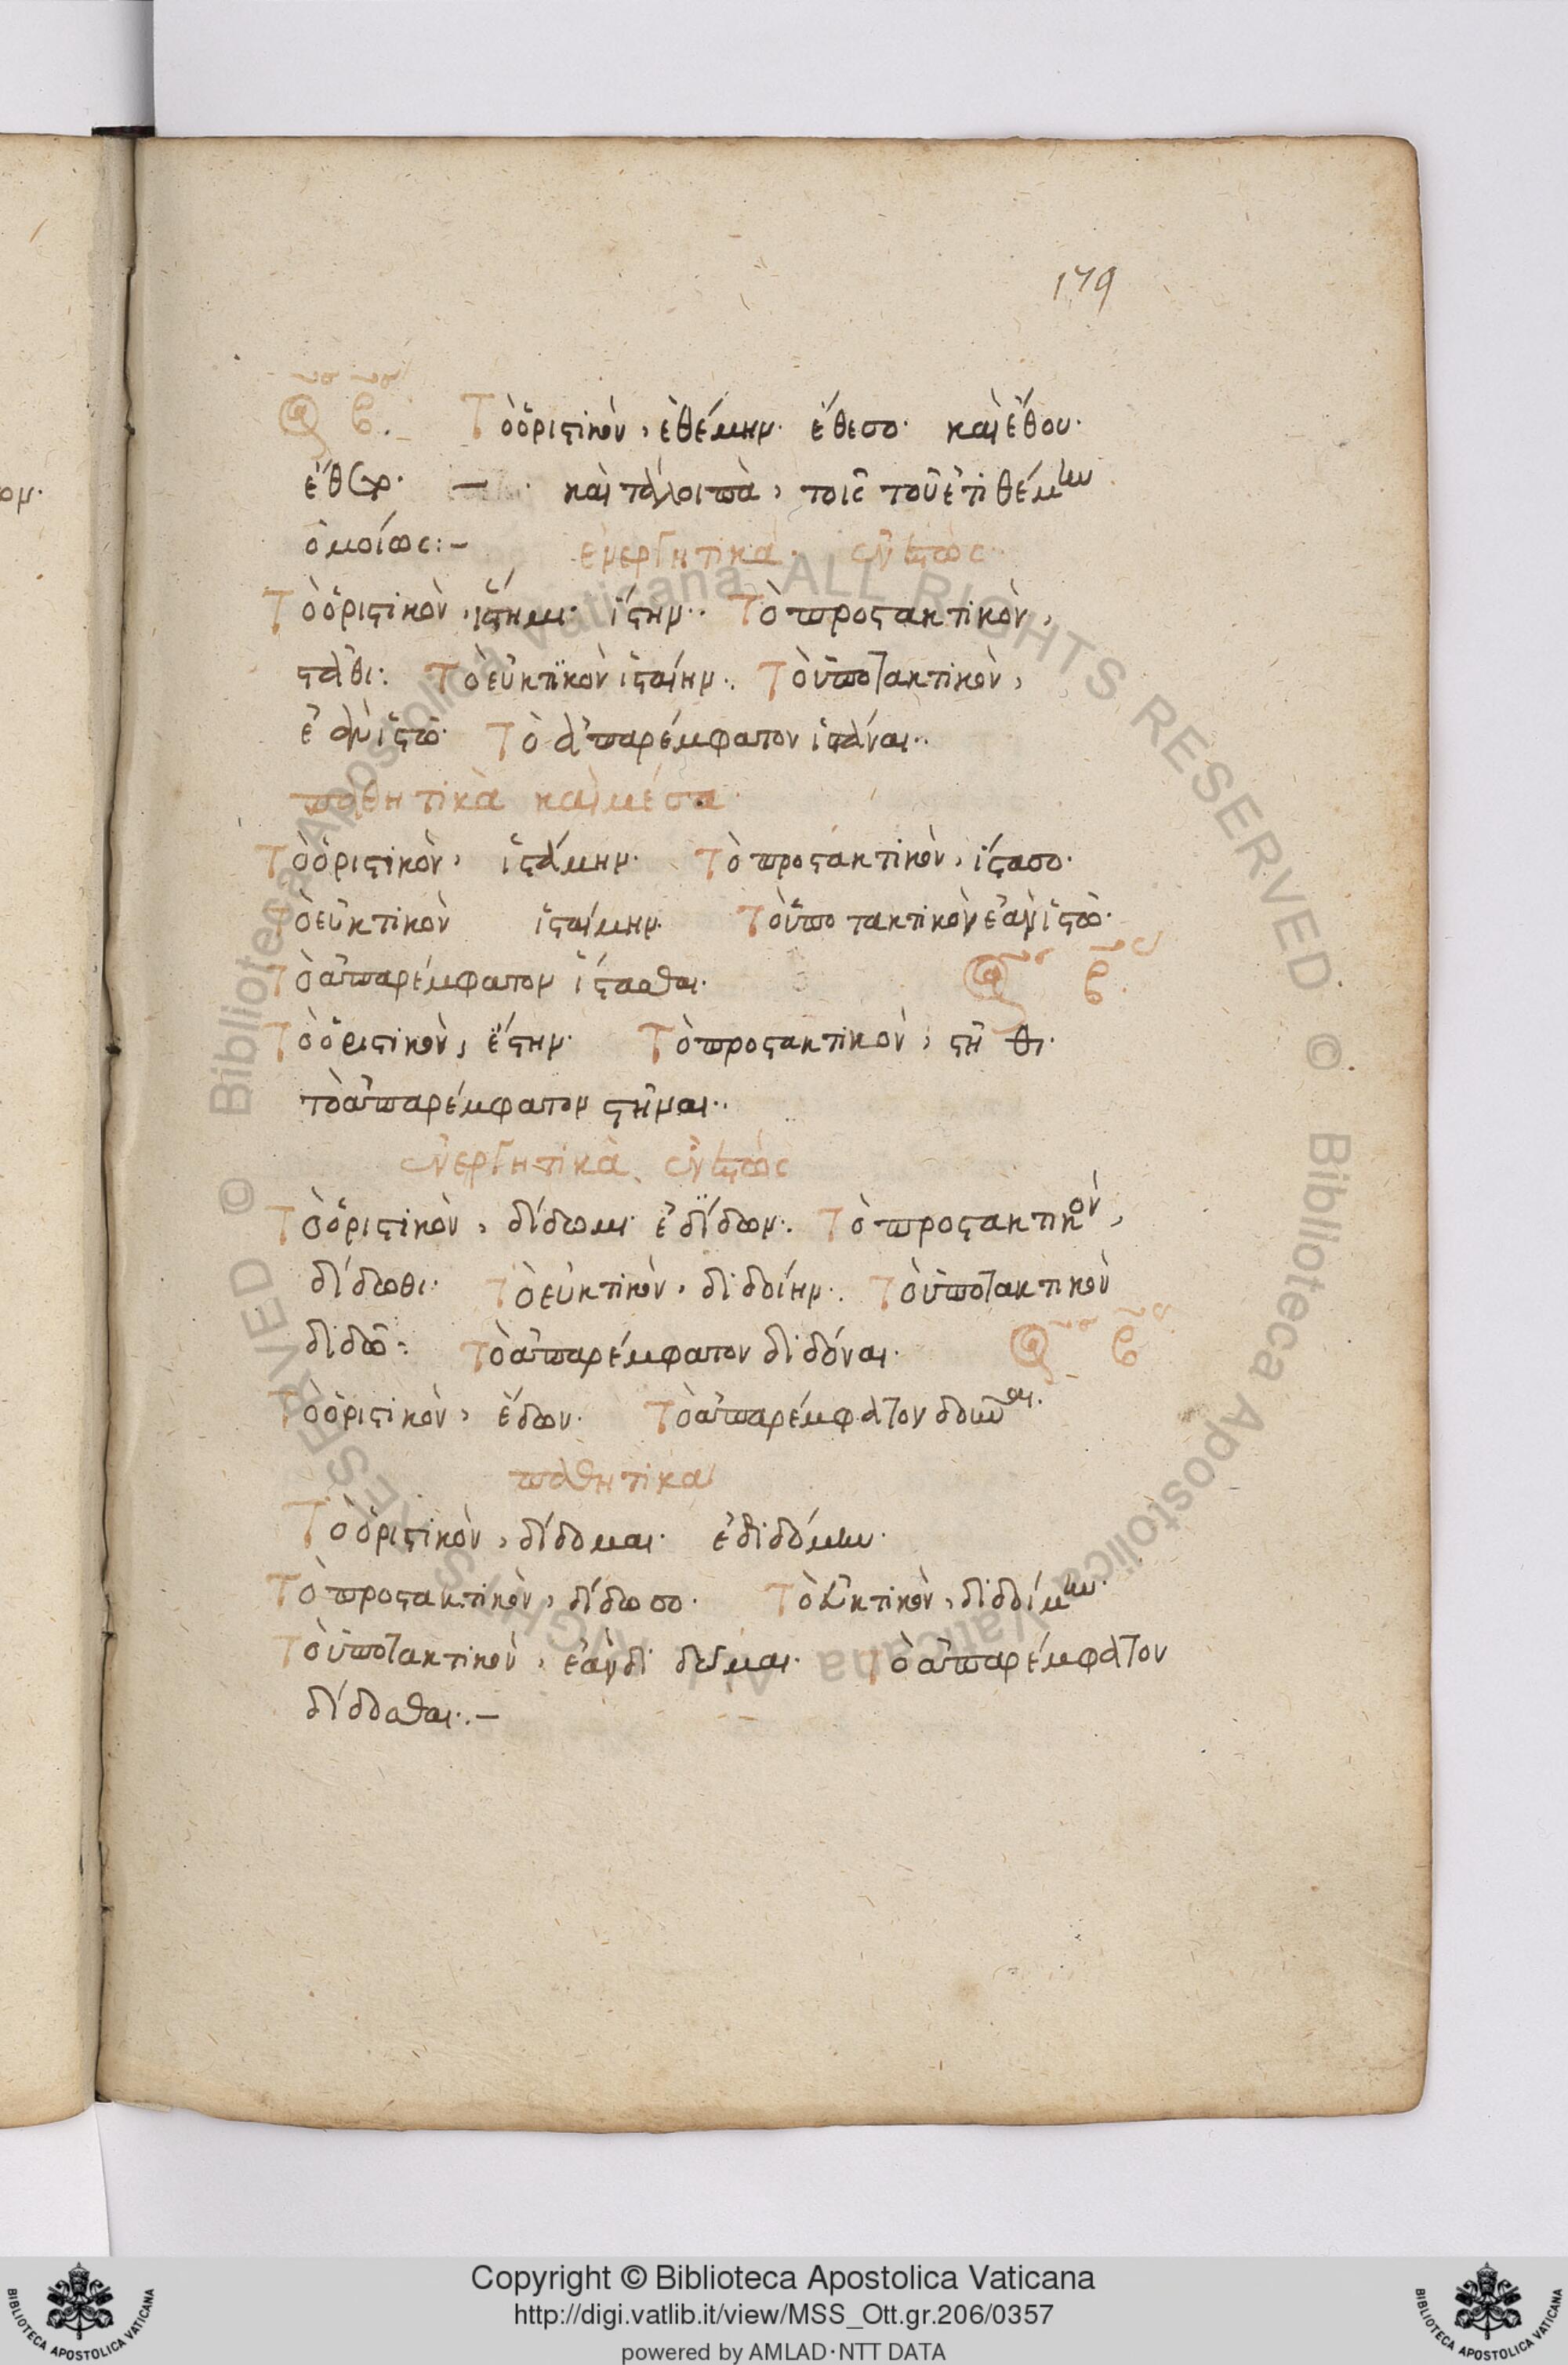 179
Τὸ ὁριστικὸν, ἐθέμην· ἔθεσο· καὶ ἔθου·
ἔθετο· — καὶ τὰ λοιπὰ, τοῖς τοῦ ἐτιθέμην
ὁμοίως:—
ἐνεργητικὰ· ἐνεστῶς
Τὸ ὁριστικὸν, ἵστημι· ἵστην·· Τὸ προστακτικὸν,
σταθι: Τὸ εὐκτικὸν ἱσταίην·. Τὸ ὑποτακτικὸν,
ἐὰν ἱστῶ· Τὸ ἀπαρέμφατον ἱστάναι··
παθητικὰ καὶ μέσα·
Τὸ ὁριστικὸν, ἱστάμην· Τὸ προστακτικὸν, ἵστασο·
Τὸ εὐκτικὸν ἱσταίμην· Τὸ ὑποτακτικὸν ἐὰν ἱστῶ·
Τὸ ἀπαρέμφατον ἵστασθαι·
Τὸ ὁριστικὸν, ἔστην· Τὸ προστακτικὸν, στῆθι·
τὸ ἀπαρέμφατον στῆναι··
ἐνεργητικὰ. ἐνεστῶς
Τὸ ὁριστικὸν, δίδωμι ἐδίδων·. Τὸ προστακτικὸν,
δίδωθι· Τὸ εὐκτικὸν, διδοίην·. Τὸ ὑποτακτικὸν
διδῶ: Τὸ ἀπαρέμφατον διδόναι·
Τὸ ὁριστικὸν, ἔδων· Τὸ ἀπαρέμφατον δοῦναι·
παθητικὰ
Τὸ ὁριστικὸν, δίδομαι· ἐδιδόμην·
Τὸ προστακτικὸν, δίδωσο· Τὸ εὐκτικὸν, διδοίμην·
Τὸ ὑποτακτικὸν, ἐὰν διδῶμαι· Τὸ ἀπαρέμφατον
δίδοσθαι·.—
© Biblioteca Apostolica Vaticana ALL RIGHTS RESERVED © Biblioteca Apostolica Vaticana ALL RIGHTS RESERVED
Copyright © Biblioteca Apostolica Vaticana
http://digi.vatlib.it/view/MSS_Ott.gr.206/0357
powered by AMLAD·NTT DATA
BIBLIOTECA APOSTOLICA VATICANA
BIBLIOTECA APOSTOLICA VATICANA